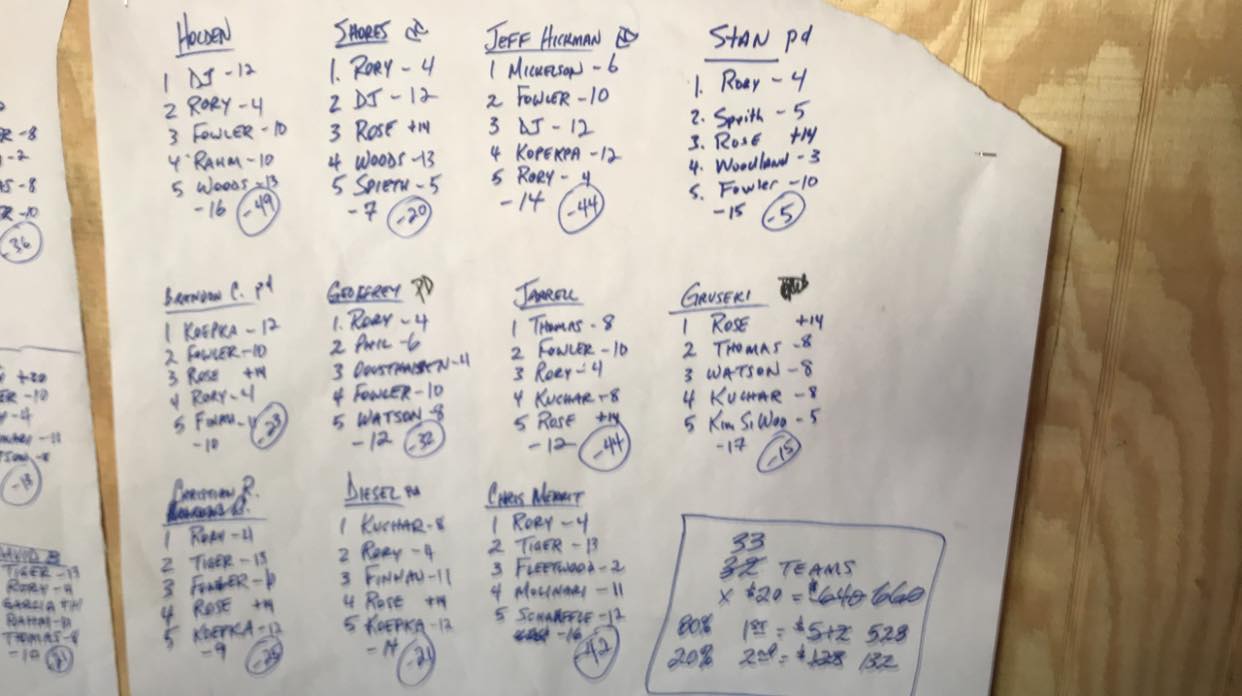 HOLDEN
1 DJ -12
2 RORY -4
3 FOWLER -10
4 RAHM -10
5 WOODS -13
-16 -49
SHORES
1. RORY - 4
2 DJ - 12
3 ROSE +14
4 WOODS -13
5 SPIETH -5
-7 -20
JEFF HICKMAN
1 MICKELSON - 6
2 FOWLER -10
3 DJ - 12
4 KOPEKPA -12
5 RORY - 4
-14 -44
STAN pd
1. Rory - 4
2. Speith - 5
3. Rose +14
4. Woodland -3
5. Fowler -10
-15 -5
BRANDON C. pd
1 KOEPKA -12
2 FOWLER -10
3 ROSE +14
4 RORY -4
5 FINAU
-10
GEOFFREY PD
1. RORY -4
2 PHIL -6
3 -4
4 FOWLER -10
5 WATSON -8
-12 -32
JARRELL
1 THOMAS - 8
2 FOWLER -10
3 RORY -4
4 KUCHAR -8
5 ROSE +14
-12 -44
GRUSEKI
1 ROSE +14
2 THOMAS -8
3 WATSON -8
4 KUCHAR -8
5 Kim Si Woo - 5
-17 -15
CHRISTIAN R.
1 RORY -4
2 TIGER -13
3 FOWLER
4 ROSE +14
5 KOEPKA -12
-9
DIESEL
1 KUCHAR -8
2 RORY -4
3 FINNAU -11
4 ROSE +14
5 KOEPKA -12
-14 -21
CHRIS MERRIT
1 RORY -4
2 TIGER -13
3 FLEETWOOD -2
4 MOLINARI -11
5 SCHAUFFLE -12
-16 -42
33
32 TEAMS
x $20 = $640 660
80% 1st = $512 528
20% 2nd = $128 132
-8
-2
-8
-10
-36
+20
-10
-4
-11
-8
-13
DAVID B
TIGER -13
RORY -4
GARCIA +14
RAHM -10
THOMAS -8
-10 -21